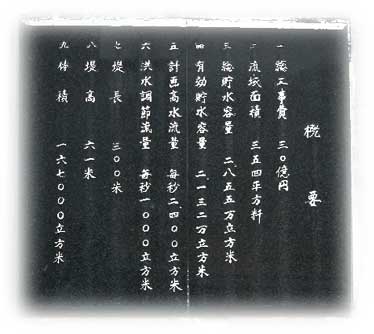 概要
一 総工事費 三〇億円
二 流域面積 三五四平方粁
三 総貯水容量 二八五五万立方米
四 有効貯水容量 二一三二万立方米
五 計画高水流量 毎秒二、四〇〇立方米
六 洪水調節流量 毎秒一〇〇〇立方米
七 堤長 三〇〇米
八 堤高 六一米
九 体積 一六七〇〇〇立方米